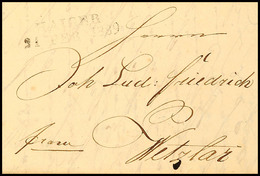 Herrn
Joh Lud: Friedrich
franco
Wetzlar